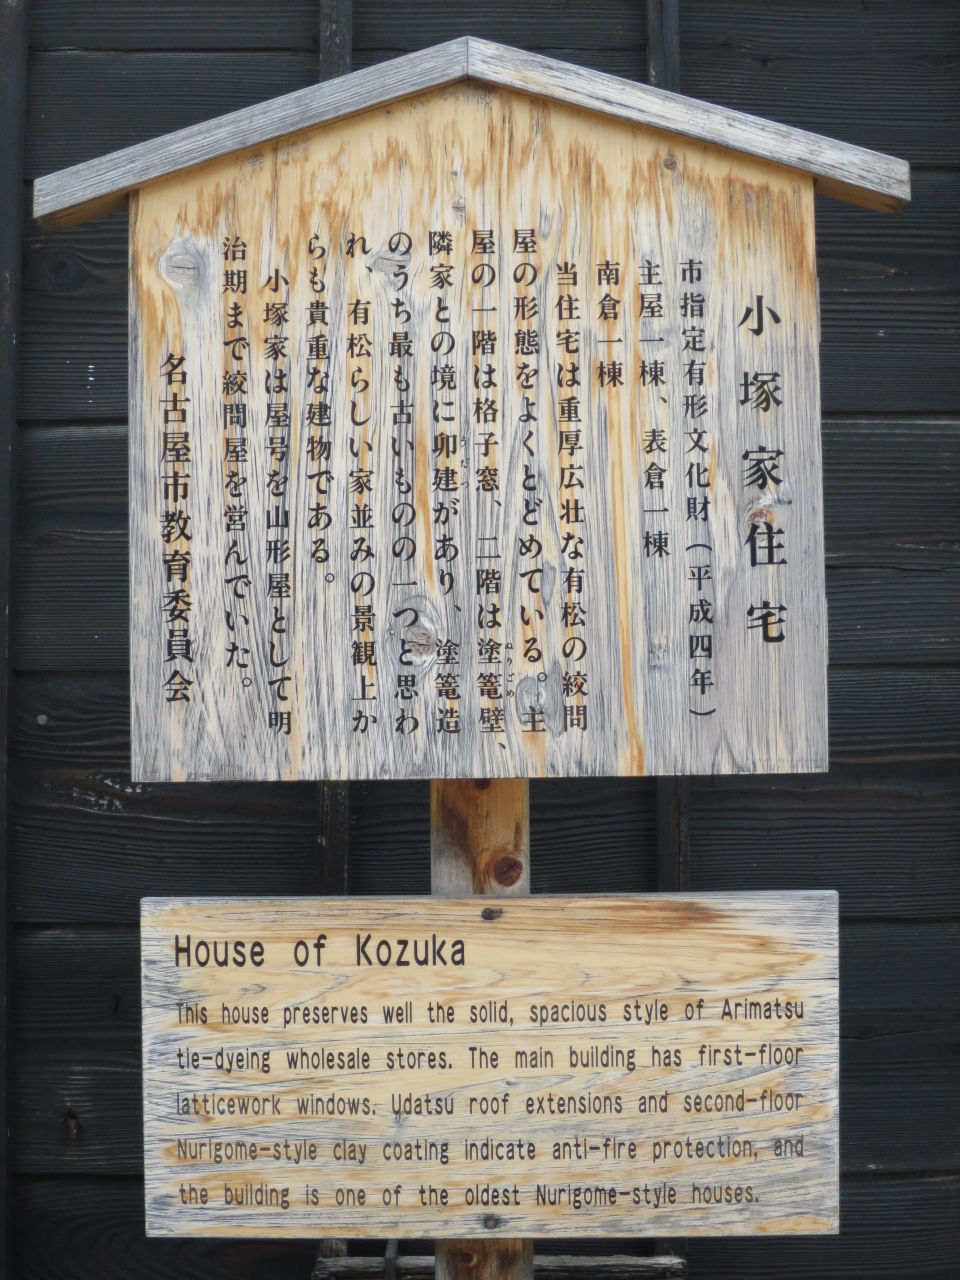 小塚家住宅
市指定有形文化財(平成四年)
主屋一棟、表倉一棟
南倉一棟
当住宅は重厚広壮な有松の絞問
屋の形態をよくとどめている。主
屋の一階は格子窓、二階は塗篭壁、
ぬりごめ
隣家との境に卯建があり、塗篭造
うだつ
のうち最も古いものの一つと思わ
れ、有松らしい家並みの景観上か
らも貴重な建物である。
小塚家は屋号を山形屋として明
治期まで絞問屋を営んでいた。
名古屋市教育委員会
House of Kozuka
This house preserves well the solid, spacious style of Arimatsu
tie-dyeing wholesale stores. The main building has first-floor
latticework windows. Udatsu roof extensions and second-floor
Nurigome-style clay coating indicate anti-fire protection, and
the building is one of the oldest Nurigome-style houses.